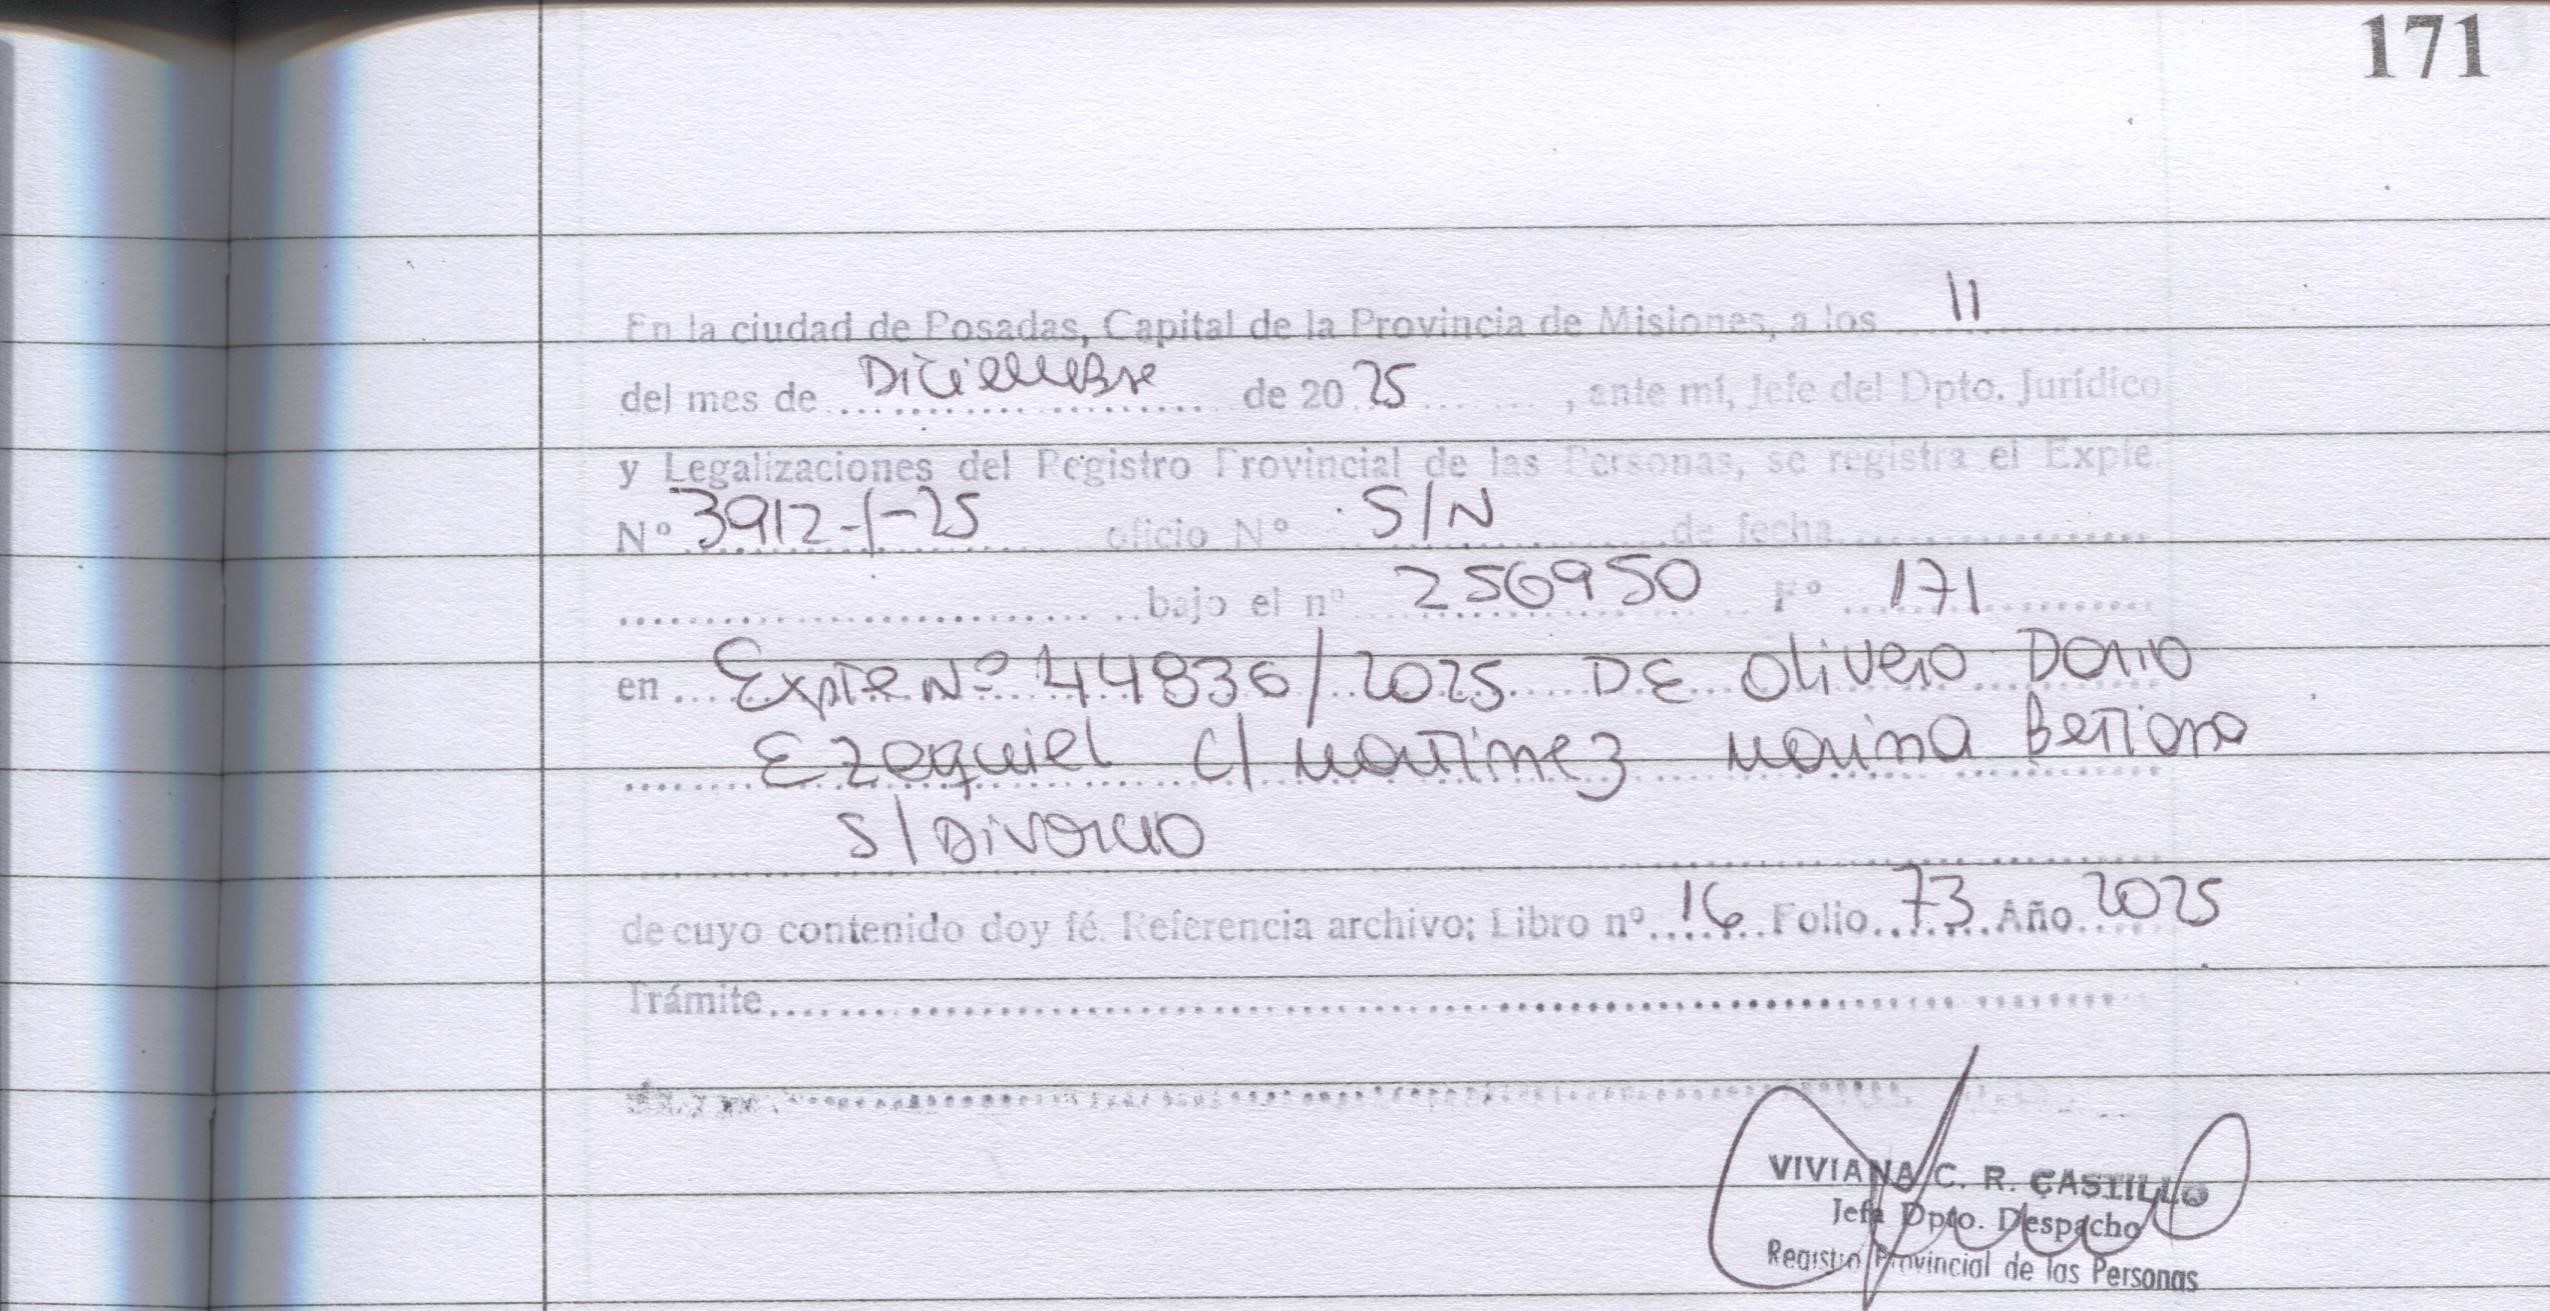 171
En la ciudad de Posadas, Capital de la Provincia de Misiones, a los 11
del mes de Diciembre de 2025, ante mí, Jefe del Dpto. Jurídico
y Legalizaciones del Registro Provincial de las Personas, se registra el Expte.
Nº 3912-1-25 oficio Nº S/N de fecha
bajo el nº 256950 Fº 171
en Expte Nº 44836/2025 DE Olivero Dario
Ezequiel c/ Martinez Marina Betiana
S/Divorcio
de cuyo contenido doy fé. Referencia archivo; Libro nº 16 Folio 73 Año 2025
Trámite
VIVIANA C. R. CASTILLO
Jefa Dpto. Despacho
Registro Provincial de las Personas